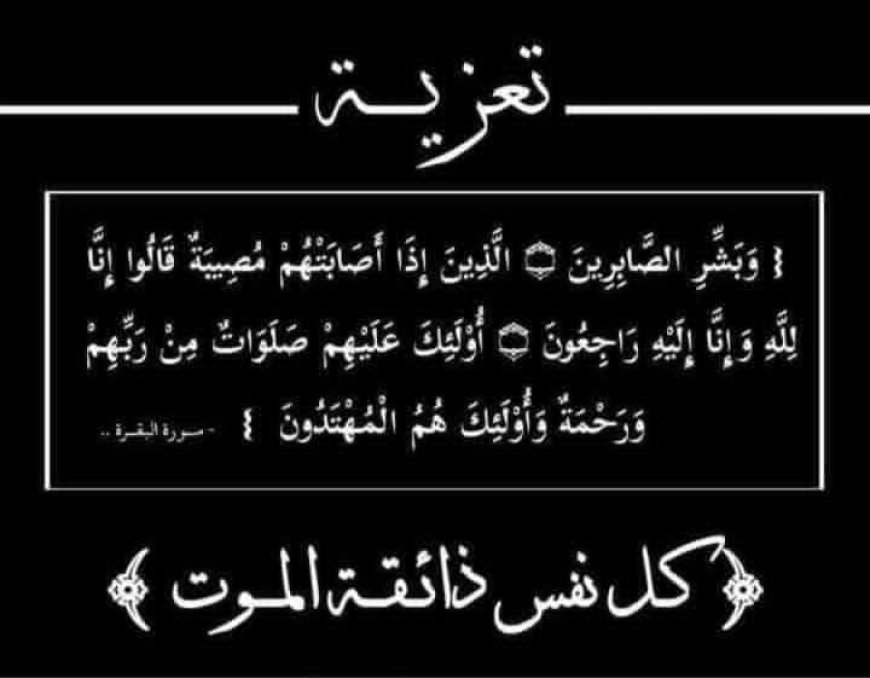 تعزية
{ وَبَشِّرِ الصَّابِرِينَ ۝ الَّذِينَ إِذَا أَصَابَتْهُمْ مُصِيبَةٌ قَالُوا إِنَّا
لِلَّهِ وَإِنَّا إِلَيْهِ رَاجِعُونَ ۝ أُوْلَئِكَ عَلَيْهِمْ صَلَوَاتٌ مِنْ رَبِّهِمْ
وَرَحْمَةٌ وَأُوْلَئِكَ هُمُ الْمُهْتَدُونَ } - سورة البقرة ..
﴿كل نفس ذائقة الموت﴾